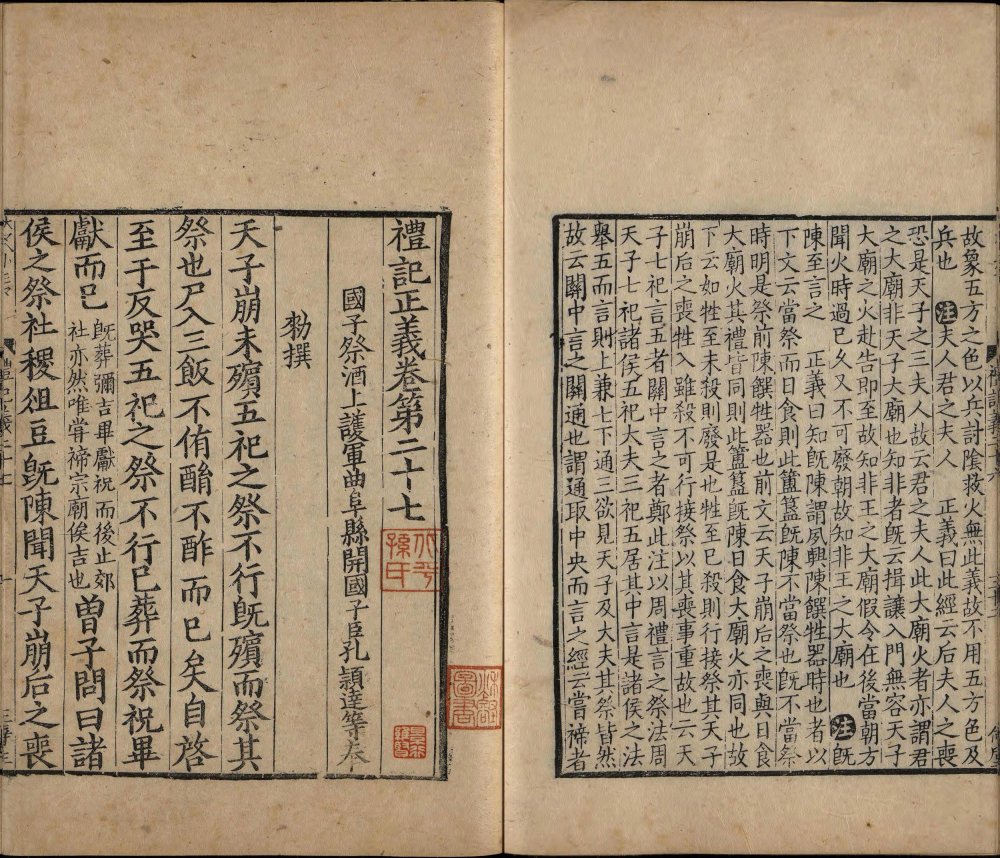 故象五方之色以兵討陰救火無此義故不用五方色及
兵也 注夫人君之夫人 正義曰此經云后夫人之喪
恐是天子之三夫人故云君之夫人此大廟火者亦謂君
之大廟非天子大廟也知非者旣云揖讓入門無容天子
大廟之火赴告即至故知非王之大廟假令在後當朝方
聞火時過已久又不可廢朝故知非王之大廟也 注旣
陳至言之 正義曰知旣陳謂夙興陳饌牲器時也者以
下文云當祭而日食則此簠簋旣陳不當祭也旣不當祭
時明是祭前陳饌牲器也前文云天子崩后之喪與日食
大廟火其禮皆同則此簠簋旣陳日食大廟火亦同也故
下云如牲至未殺則廢是也牲至已殺則行接祭其天子
崩后之喪牲入雖殺不可行接祭以其喪事重故也云天
子七祀言五者關中言之者鄭此注以周禮言之祭法周
天子七祀諸侯五祀大夫三祀五居其中言是諸侯之法
舉五而言則上兼七下通三欲見天子及大夫其祭皆然
故云關中言之關通也謂通取中央而言之經云嘗禘者
禮記正義卷第二十七
國子祭酒上護軍曲阜縣開國子臣孔穎達等奉
勑撰
天子崩未殯五祀之祭不行旣殯而祭其
祭也尸入三飯不侑酳不酢而已矣自啓
至于反哭五祀之祭不行已葬而祭祝畢
獻而已 旣葬彌吉畢獻祝而後止郊社亦然唯嘗禘宗廟俟吉也 曾子問曰諸
侯之祭社稷俎豆旣陳聞天子崩后之喪
孫氏
圖書